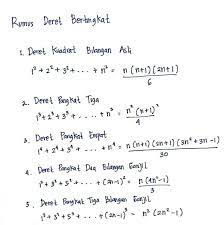 Rumus Deret Bertingkat
1. Deret Kuadrat Bilangan Asli
1² + 2² + 3² + ... + n² = n(n+1)(2n+1)/6
2. Deret Pangkat Tiga
1³ + 2³ + 3³ + ... + n³ = n²(n+1)²/4
3. Deret Pangkat Empat
1⁴ + 2⁴ + 3⁴ + ... + n⁴ = n(n+1)(2n+1)(3n²+3n-1)/30
4. Deret Pangkat Dua Bilangan Ganjil
1² + 3² + 5² + ... + (2n-1)² = n(4n²-1)/3
5. Deret Pangkat Tiga Bilangan Ganjil
1³ + 3³ + 5³ + ... + (2n-1)³ = n²(2n²-1)